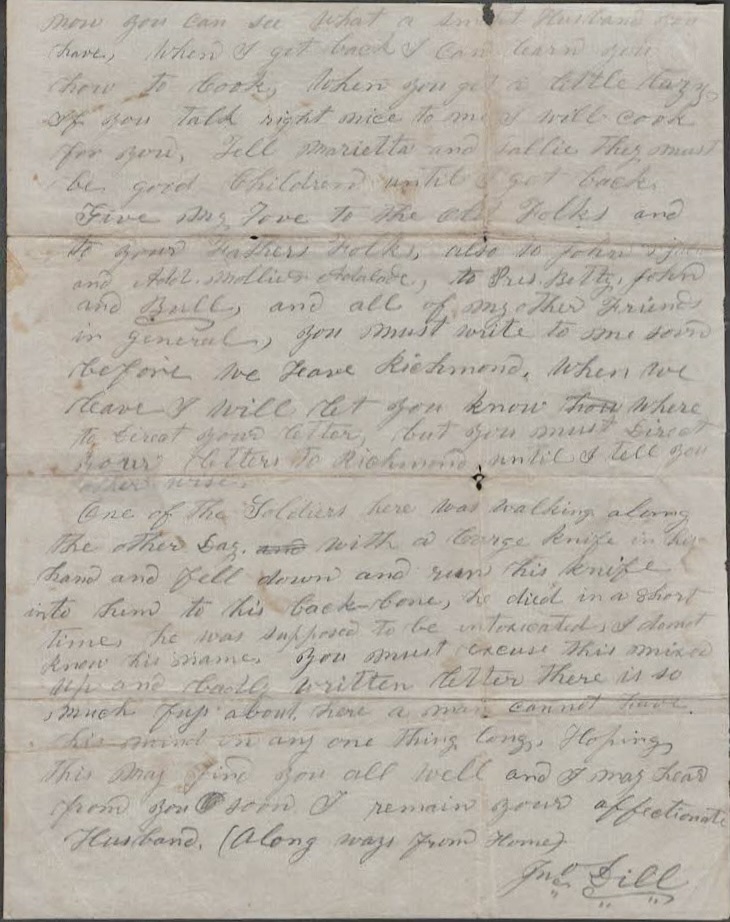 now you can see what a smart Husband you
have, When I get back I can learn you
how to Cook, When you get a little lazy,
If you talk right nice to me I will cook
for you, Tell Marietta and Sallie they must
be good Children until I get back
Give my Love to the old Folks and
to your Fathers Folks, also to John
and Add. Mollie & Adalade, to Pres. Betty, John
and Bull, and all of my other Friends
in general, you must write to me soon
before we Leave Richmond. When we
leave I will let you know thou where
to Direct your letter, but you must Direct
your letters to Richmond until I tell you
other wise.
One of the Soldiers here was walking along
the other Day. and with a large Knife in his
hand and fell down and run his knife
into him to his back-bone, he died in a short
time, he was supposed to be intoxicated, I donot
know his name. You must excuse this mixed
up and badly written letter there is so
much fuss about here a man cannot have
his mind on any one thing long. Hoping
this may find you all well and I may hear
from you soon I remain your affectionate
Husband. (Along ways from Home)
Jno. Dill